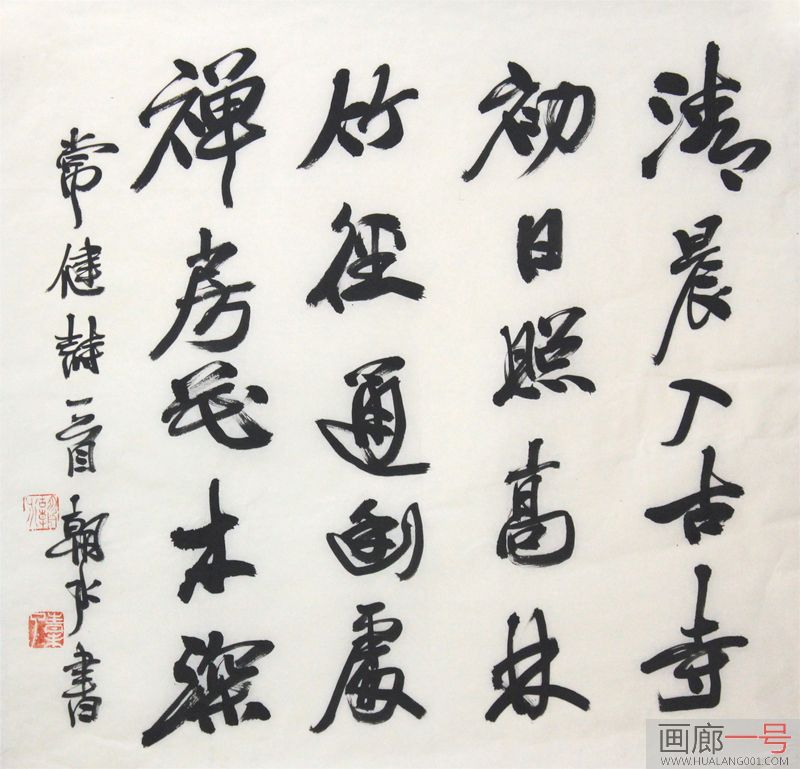 清晨入古寺
初日照高林
竹径通幽處
禅房花木深
常健詩一首朝水書
画廊一号
WWW.HUALANG001.COM